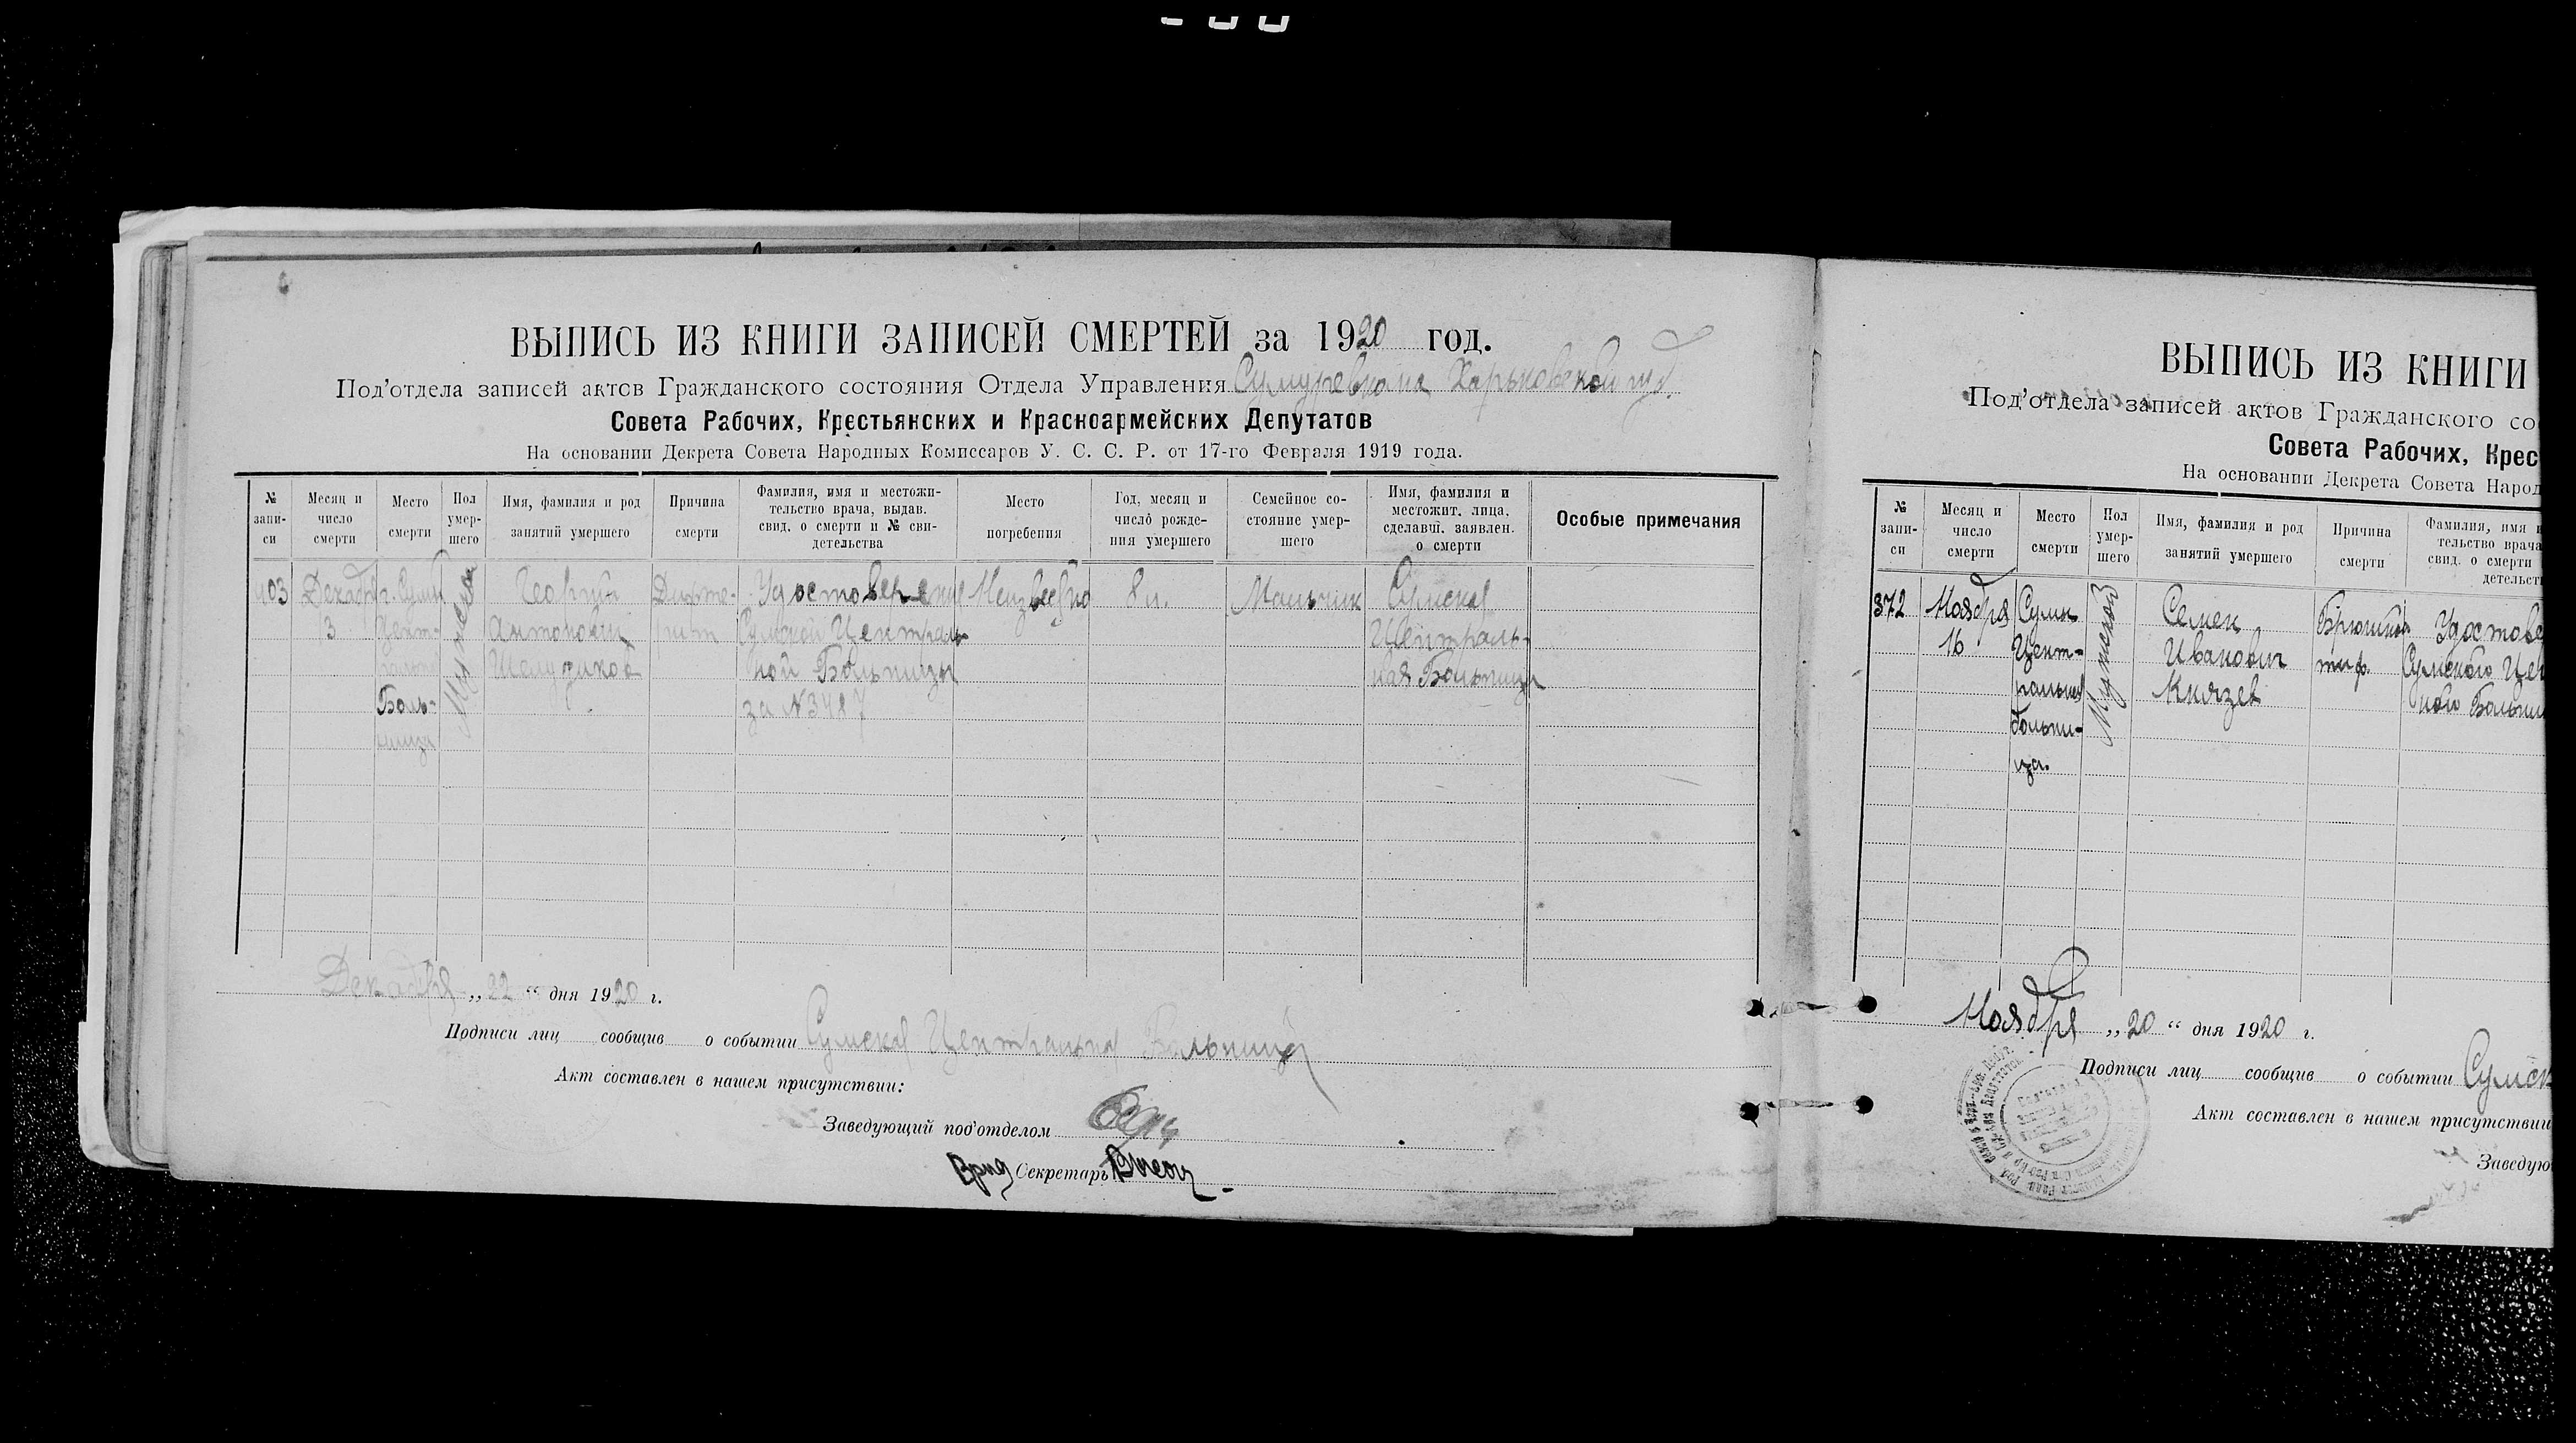 ВЫПИСЬ ИЗ КНИГИ ЗАПИСЕЙ СМЕРТЕЙ за 1920 год.
Под'отдела записей актов Гражданского состояния Отдела Управления Харьковской губ.
Совета Рабочих, Крестьянских и Красноармейских Депутатов
На основании Декрета Совета Народных Комиссаров У. С. С. Р. от 17-го Февраля 1919 года.
№ запи-си
Месяц и число смерти
Место смерти
Пол умер-шего
Имя, фамилия и род занятий умершего
Причина смерти
Фамилия, имя и местожи-тельство врача, выдав. свид. о смерти и № сви-детельства
Место погребения
Год, месяц и число рожде-ния умершего
Семейное со-стояние умер-шего
Имя, фамилия и местожит. лица, сделавш. заявлен. о смерти
Особые примечания
403 Декабря г. Сумы Мужской Георгий Дифте- Удостоверение Неизвестно 8 л. Мальчик Сумская
13 Цент- Антонович рит Сумской Централь- Централь-
ральная ной Больницы ная Больница
Боль- за №3487
ница
Декабря „22“ дня 1920 г.
Подписи лиц сообщив о событии Сумская Центральна Больница
Акт составлен в нашем присутствии:
Заведующий под'отделом
Врид Секретарь
ВЫПИСЬ ИЗ КНИГИ
Под'отдела записей актов Гражданского со
Совета Рабочих, Крес
На основании Декрета Совета Народ
№ запи-си
Месяц и число смерти
Место смерти
Пол умер-шего
Имя, фамилия и род занятий умершего
Причина смерти
Фамилия, имя и тельство врача свид. о смерти детельст
372 Ноября Сумы Мужской Семен Брюшной Удостове
16 Цент- Иванович тиф. Сумского Цен
ральная Князев ной Больни
больни-
ца.
Ноября „20“ дня 1920 г.
Подписи лиц сообщив о событии Сумск
Акт составлен в нашем присутствии
Заведую